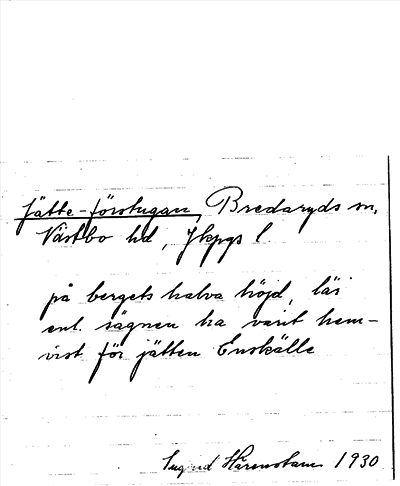 Jätte-förstugan, Bredaryds sn,
Västbo hd, Jkpgs l
på bergets halva höjd, lär
enl. sägnen ha varit hem-
vist för jätten Enskälle
Ingrid Härenstam 1930